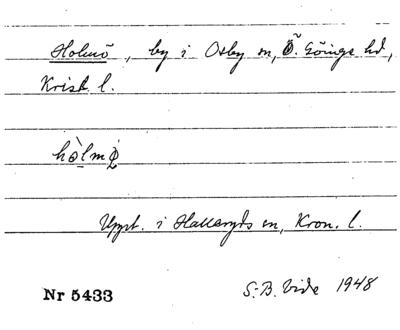 Holmö, by i Osby sn, Ö. Göinge hd,
Krist. l.
hòlmö̀
Uppt. i Hallaryds sn, Kron. l.
Nr 5433 S.B. Vide 1948